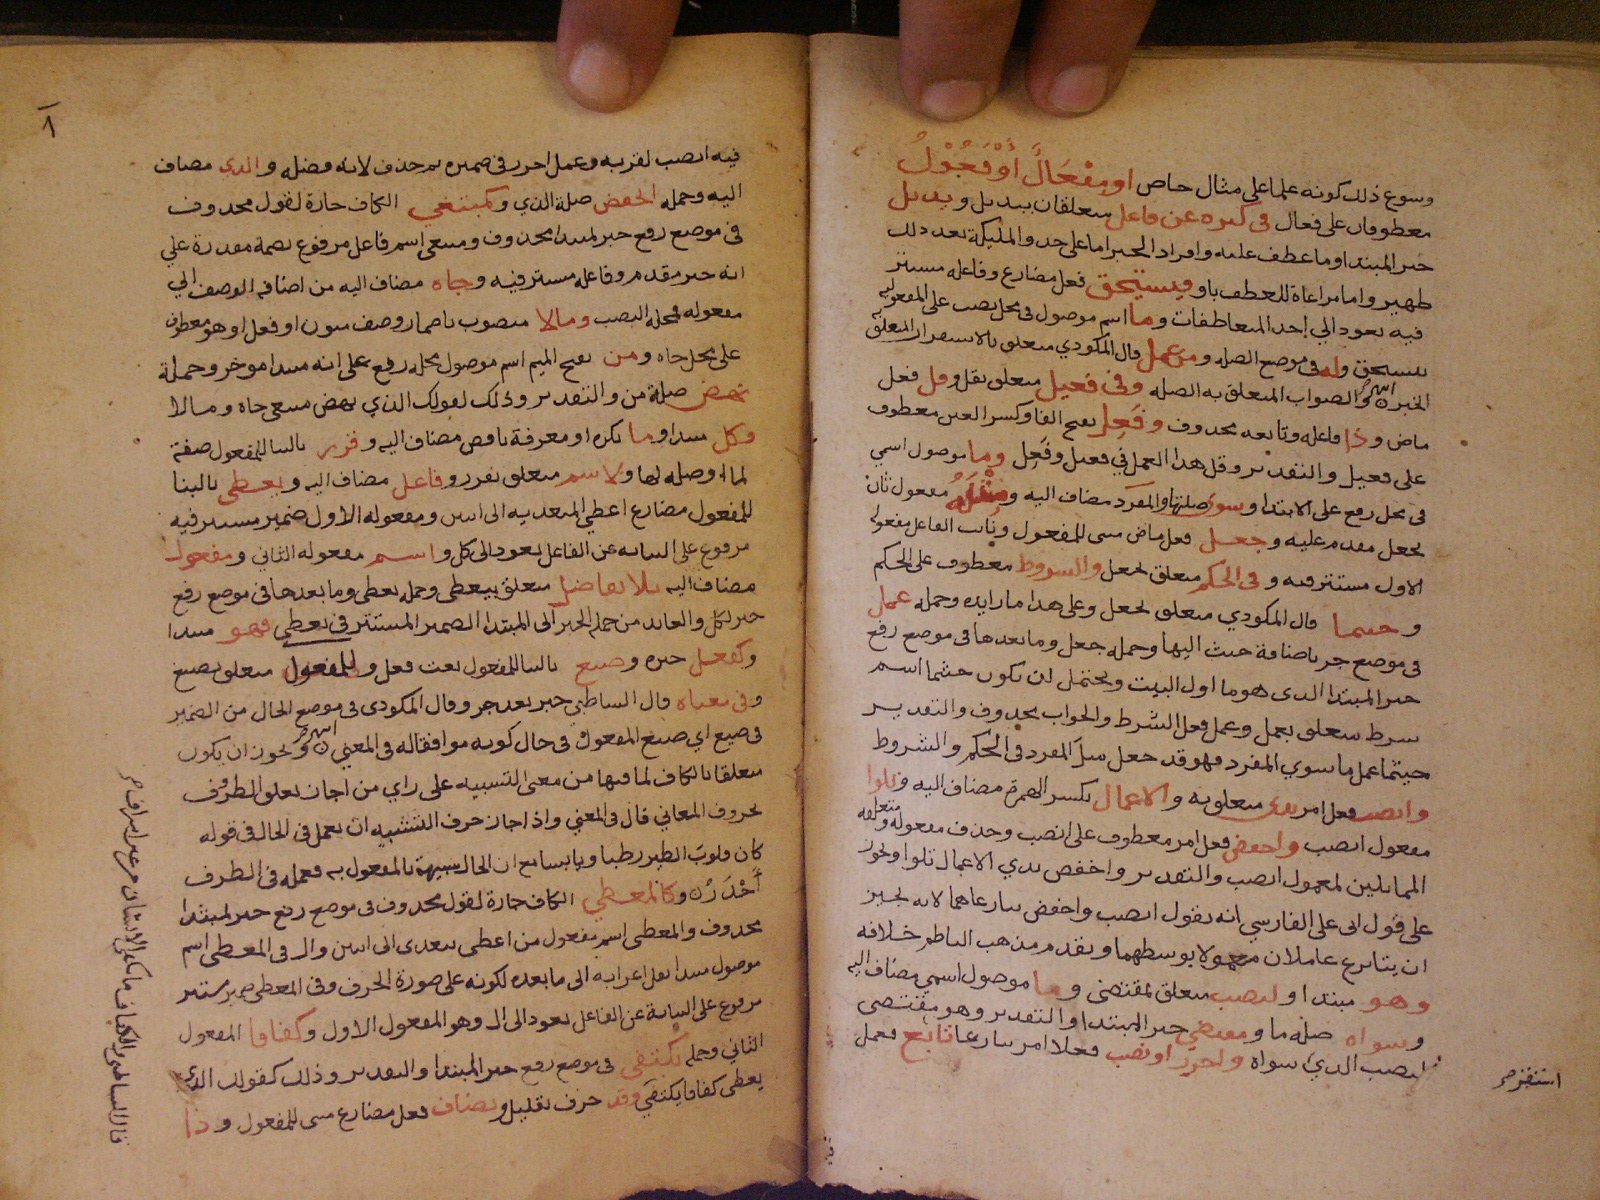 وسوغ ذلك كونه علما على مثال خاص او مفعال أو فعول
معطوفان على فعال في كثرة عن فاعل متعلقان ببديل وبديل
خبر المبتدا وما عطف عليه وافراد الخبر اما على حد والملئكة بعد ذلك
ظهير واما مراعاة للعطف باو فيستحق فعل مضارع وفاعله مستتر
فيه يعود الي احد المتعاطفات وما اسم موصول في محل نصب على المفعوليه
بيستحق وله في موضع الصله ومن عمل قال المكودي متعلق بالاستقرار المتعلق
الخبر والصواب المتعلق به الصله وفي فعيل متعلق بقل وقل فعل
ماض وذا فاعله وتابعه محذوف وفعل بفتح الفا وكسر العين معطوف
على فعيل والتقدير وقل هذا العمل في فعيل وفعل وما موصول اسمي
في محل رفع على الابتدا وسوى صلتها والمفرد مضاف اليه ومثله مفعول ثان
لجعل مقدم عليه وجعل فعل ماض مبني للمفعول ونائب الفاعل مفعوله
الاول مستتر فيه وفي الحكم متعلق بجعل والشروط معطوف على الحكم
وحيثما قال المكودي متعلق بجعل وعلى هذا ما زايده وجمله عمل
في موضع جر باضافة حيث اليها وجمله جعل وما بعدها في موضع رفع
خبر المبتدا الذي هو ما اول البيت ويحتمل ان يكون حيثما اسم
شرط متعلق بعمل وعمل فعل الشرط والجواب محذوف والتقدير
حيثما عمل ما سوي المفرد فهو قد جعل مثل المفرد في الحكم والشروط
وانصب فعل امر بذي متعلق به والاعمال بكسر الهمزة مضاف اليه وتلوا
مفعول انصب واخفض فعل امر معطوف على انصب وحذف مفعوله ومتعلقه
المماثلين لمعمول انصب والتقدير واخفض بذي الاعمال تلوا ويجوز
على قول ابي علي الفارسي انه يقول انصب واخفض تنازعاهما لانه يجيز
ان يتنازع عاملان معمولا يوسطهما وتقدم مذهب الناظم خلافه
وهو مبتدا ولنصب متعلق بمقتضي وما موصول اسمي مضاف اليه
وسواه صلة ما ومقتضي خبر المبتدا والتقدير وهو مقتضي
لنصب الذي سواه واجرر او نصب فعلا امر تنازعا تابع فعمل
استقر صح
٨
فيه انصب لقربه وعمل اجرر في ضميره ثم حذف لانه فضله والذي مضاف
اليه وجمله انخفض صلة الذي وكمبتغي الكاف جارة لقول محذوف
في موضع رفع خبر لمبتدا محذوف ومبتغى اسم فاعل مرفوع بضمة مقدرة على
انه خبر مقدم وفاعله مستتر فيه وجاه مضاف اليه من اضافة الوصف الي
مفعوله فمحله النصب ومالا منصوب باضمار وصف منون او فعل او هو معطوف
على محل جاه ومن بفتح الميم اسم موصول محله رفع على انه مبتدا موخر وجملة
نهض صلة من والتقدير وذلك لقولك الذي نهض مبتغي جاه ومالا
وكل مبتدا وما نكره او معرفة ناقص مضاف اليه وقرر بالبنا للمفعول صفة
لما او صله لها ولاسم متعلق بقرر وفاعل مضاف اليه ويعطى بالبنا
للمفعول مضارع اعطي المتعديه الى اثنين ومفعوله الاول ضمير مستتر فيه
مرفوع على النيابه عن الفاعل يعود الى كل واسم مفعوله الثاني ومفعول
مضاف اليه بلا تفاضل متعلق بيعطى وجمله يعطى وما بعدها في موضع رفع
خبر لكل والعائد من جملة الخبر الى المبتدا الضمير المستتر في يعطي فهو مبتدا
وكفعل خبره وصيغ بالبنا للمفعول نعت فعل وللمفعول متعلق بصيغ
وفي معناه قال الشاطبي خبر بعد خبر وقال المكودي في موضع الحال من الضمير
في صيغ اي صيغ المفعول في حال كونه موافقا له في المعني ويجوز ان يكون
متعلقا بالكاف لما فيها من معنى التشبيه على راي من اجاز تعلق الظرف
بحروف المعاني قال في المغني واذ اجاز حرف التشبيه ان يعمل في الحال في قوله
كان قلوب الطير رطبا ويابسا مع ان الحال شبيهة بالمفعول به فعمله في الظرف
أجدر وكالمعطي الكاف جارة لقول محذوف في موضع رفع خبر لمبتدا
محذوف والمعطى اسم مفعول من اعطى يتعدى الى اثنين وال في المعطى اسم
موصول مبتدا نقل اعرابه الى ما بعده لكونه على صورة الحرف وفي المعطى ضمير مستتر
مرفوع على النيابة عن الفاعل يعود الى ال وهو المفعول الاول وكفافا المفعول
الثاني وجمله يكتفي في موضع رفع خبر المبتدا والتقدير وذلك كقولك الذي
يعطى كفافا يكتفي وقد حرف تقليل ويضاف فعل مضارع مبني للمفعول وذا